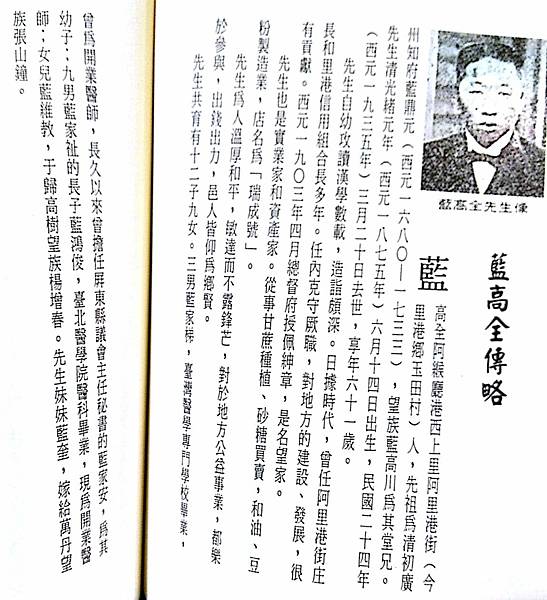 藍高全傳略
藍高全先生像
藍
高全阿緱廳港西上里阿里港街(今
里港鄉玉田村)人,先祖為清初廣
州知府藍鼎元(西元一六八0—一七三三),望族藍高川為其堂兄。
先生清光緒元年(西元一八七五年)六月十四日出生,民國二十四年
(西元一九三五年)三月二十日去世,享年六十一歲。
先生自幼攻讀漢學數載,造詣頗深。日據時代,曾任阿里港街庄
長和里港信用組合長多年。任內克守厥職,對地方的建設、發展,很
有貢獻。西元一九0三年四月總督府授佩紳章,是名望家。
先生也是實業家和資產家。從事甘蔗種植、砂糖買賣,和油、豆
粉製造業,店名為「瑞成號」。
先生為人溫厚和平,敏達而不露鋒芒,對於地方公益事業,都樂
於參與,出錢出力,邑人皆仰為鄉賢。
先生共育有十二子九女。三男藍家梯,臺灣醫學專門學校畢業,
曾為開業醫師,長久以來曾擔任屏東縣議會主任秘書的藍家安,為其
幼子;九男藍家祉的長子藍鴻俊,臺北醫學院醫科畢業,現為開業醫
師;女兒藍維教,于歸高樹望族楊增春。先生妹妹藍奎,嫁給萬丹望
族張山鐘。